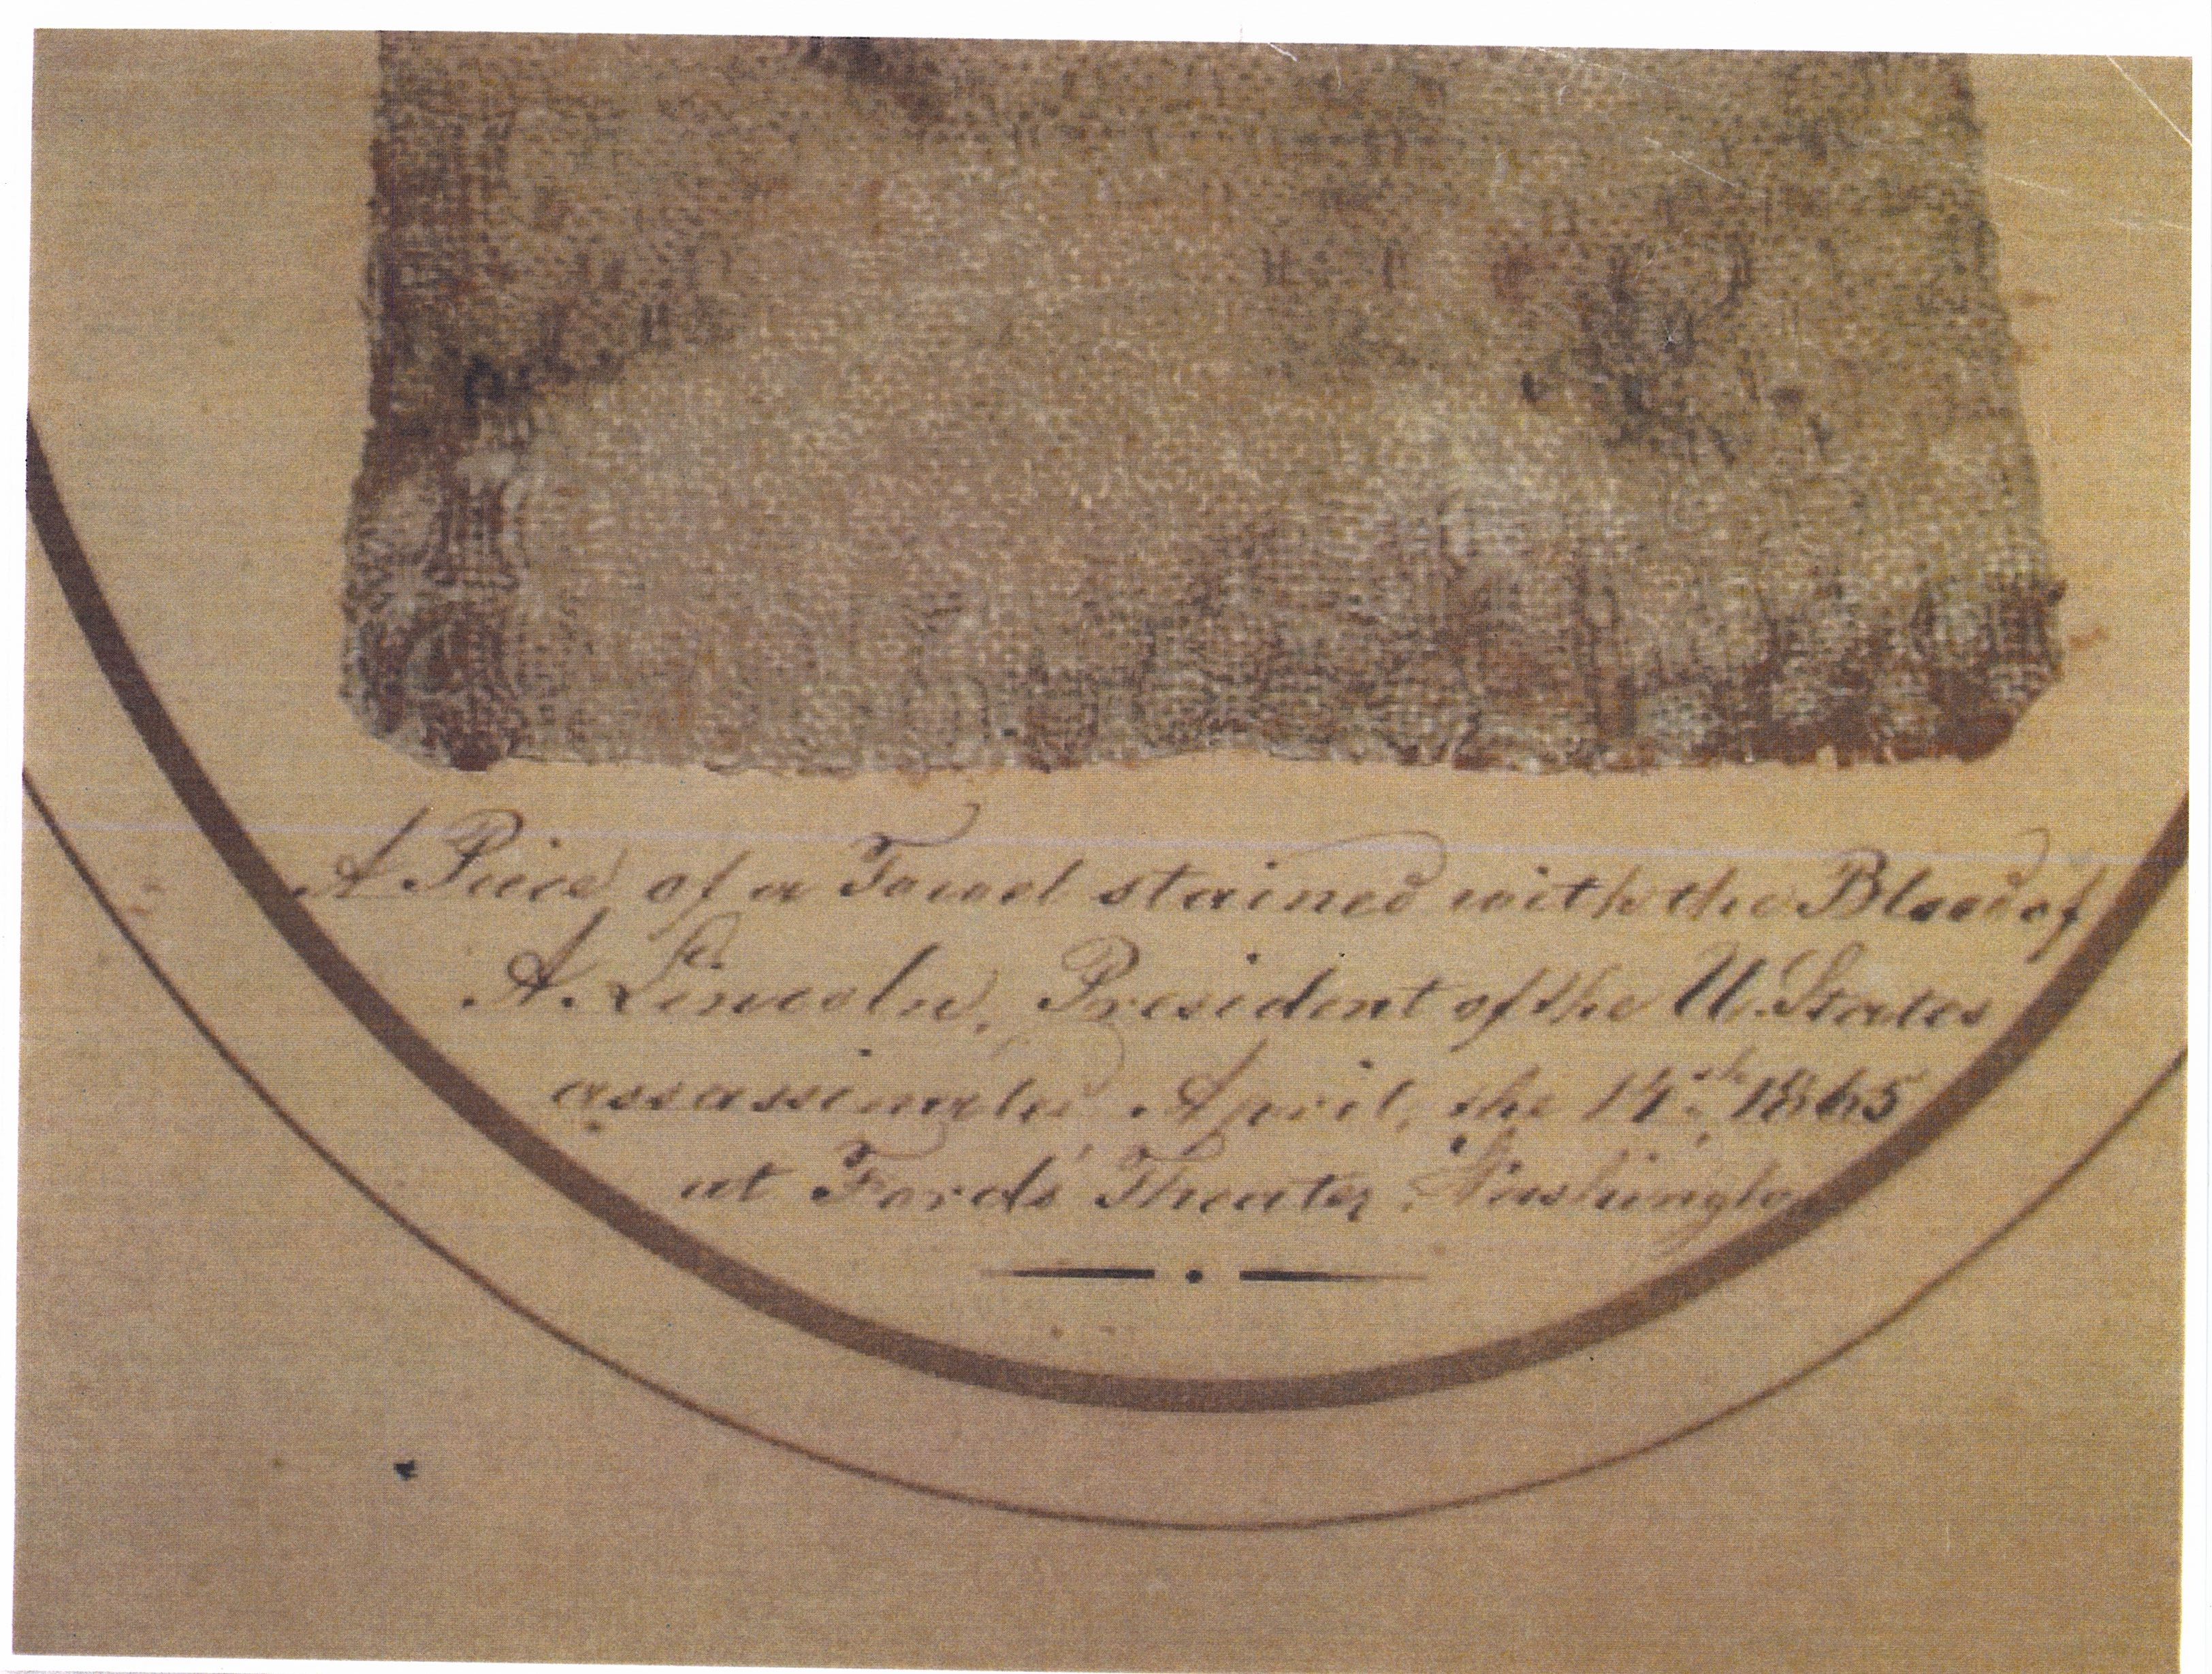 A Piece of a Towel stained with the Blood of
A. Lincoln, President of the U. States
assassinated April, the 14th 1865
at Fords' Theater, Washington